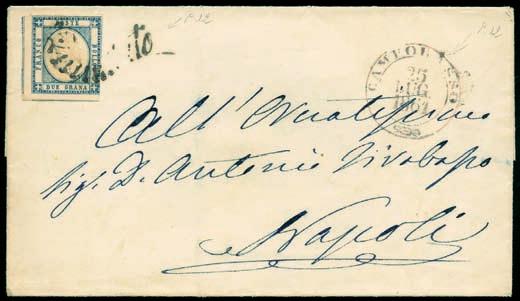 FRANCO
POSTE
BOLLO
DUE GRANA
Annullato
CAMPOBASSO
25
LUG
1861
All'Ornatissimo
Sig. D. Antonio
Napoli